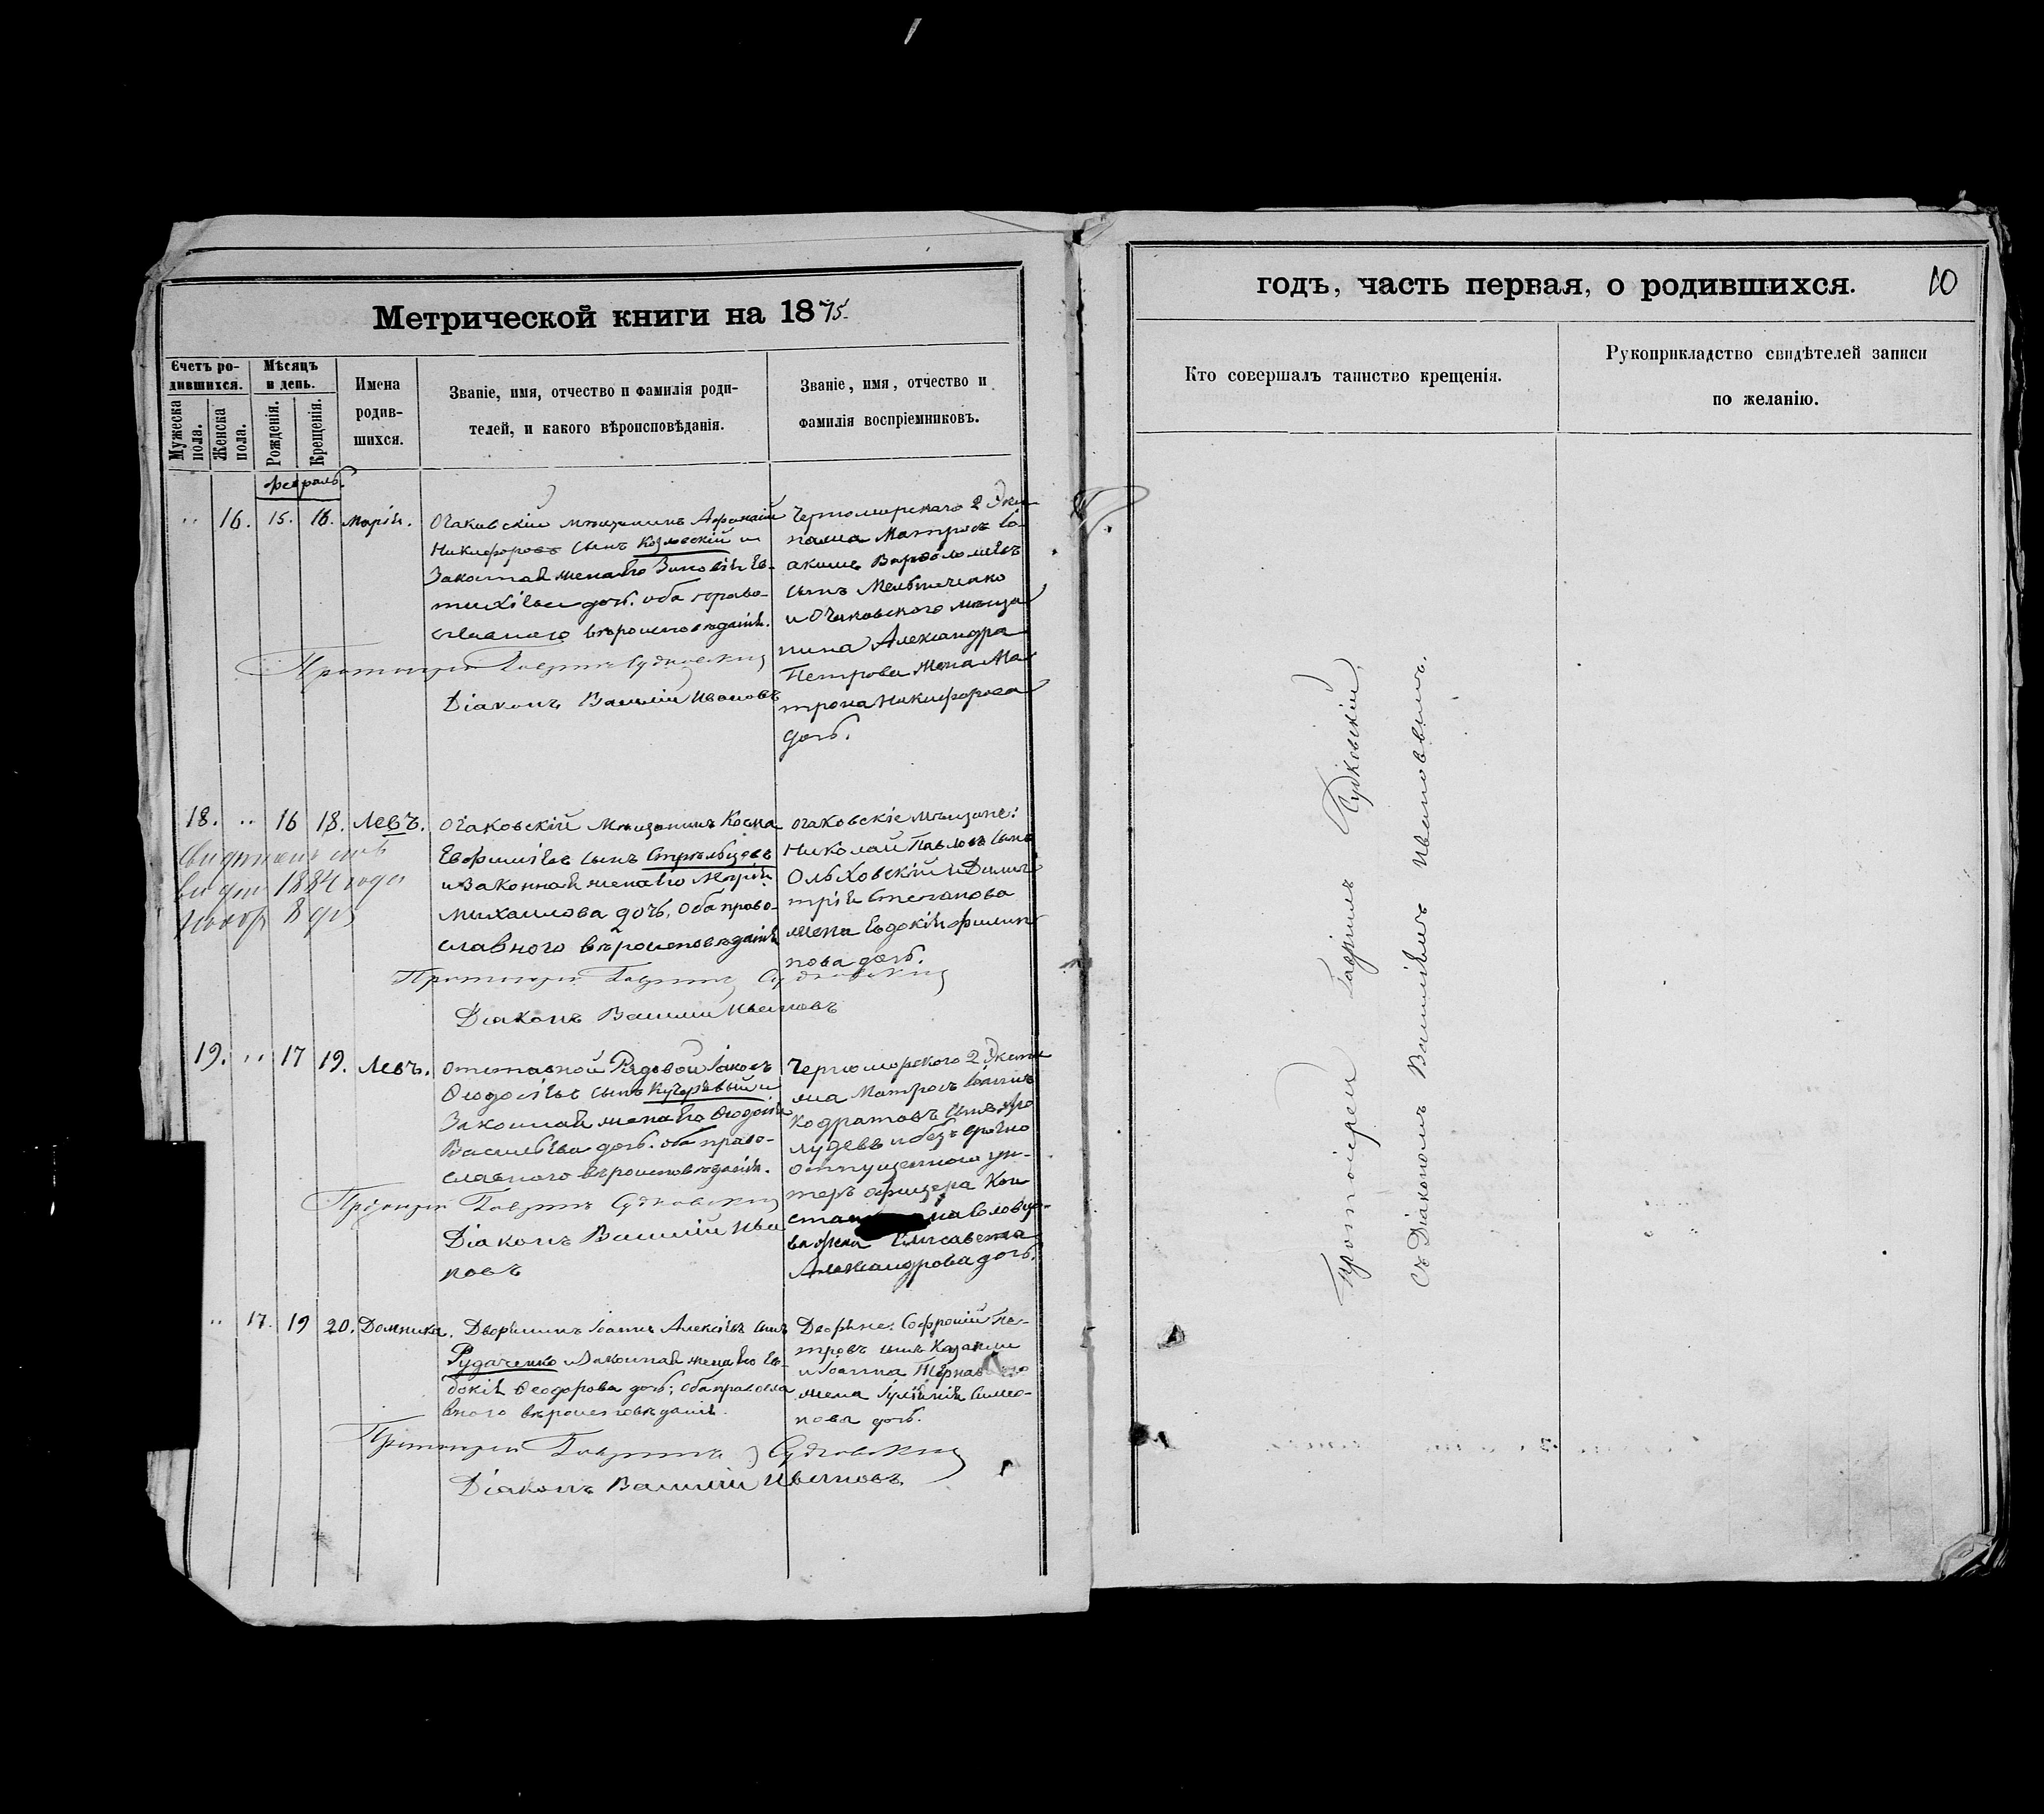 Метрической книги на 1875.
Счетъ ро-
дившихся.
Мужеска пола.
Женска пола.
Мѣсяцъ
и день.
Рожденія.
Крещенія.
Имена
родив-
шихся.
Званіе, имя, отчество и фамилія роди-
телей, и какого вѣроисповѣданія.
Званіе, имя, отчество и
фамилія воспріемниковъ.
февраль.
.. 16. 15. 16. Марія.
Очаковскій мѣщанинъ
Никифоровъ сынъ Козловскій и
Законная жена его Зиновія Ев-
тихіева дочь. оба право-
славнаго вѣроисповѣданія.
Протоіерей Гавріилъ Судковскій
Діаконъ Василій Ивановъ
Черноморскаго 2 Эки-
пажа Матросъ Іо-
акимъ Варѳоломѣевъ
сынъ Мельниченко
и Очаковскаго мѣща
нина Александра
Петрова жена Ма
трона Никифорова
дочь.
18. .. 16 18. Левъ.
1884 года
8 дня
Очаковскій Мѣщанинъ Косма
Евфиміевъ сынъ Стрѣльбцовъ
и Законная жена его Марія
Михаилова дочь, Оба право-
славного вѣроисповѣданія
Протоіерей Гавріилъ Судковскій
Діаконъ Василій Ивановъ
Очаковскіе мѣщане:
Николай Павловъ сынъ
Ольховскій и Дими
трія Степанова
жена Евдокія Филип
пова дочь.
19. .. 17 19. Левъ.
Отставной Рядовой Іаковъ
Ѳеодосіевъ сынъ Кучерявый и
Законная жена его Ѳеодосія
Васильева дочь. оба право-
славного вѣроисповѣданія.
Протоіерей Гавріилъ Судковскій
Діаконъ Василій Ива
новъ
Черноморского 2 Экипа
жа Матросъ Іоаннъ
Кодратовъ сынъ
и безсрочно
отпущенного ун-
теръ офицера Кон
жена Елисавета
Александрова дочь.
.. 17. 19 20. Домника.
Дворянинъ Іоаннъ Алексіевъ сынъ
Рудаченко и Законная жена его Ев-
докія Ѳеодорова дочь; оба правосла
вного вѣроисповѣданія.
Протоіерей Гавріилъ Судковскій
Діаконъ Василій Ивановъ
Дворяне: Софроній Пе-
тровъ сынъ
и Іоанна
жена Іуліанія Симео-
нова дочь.
годъ, часть первая, о родившихся.
10
Кто совершалъ таинство крещенія.
Рукоприкладство свидѣтелей записи
по желанію.
Протоіерей Гавріилъ Судковскій
Съ Діакономъ Василіемъ Ивановымъ.